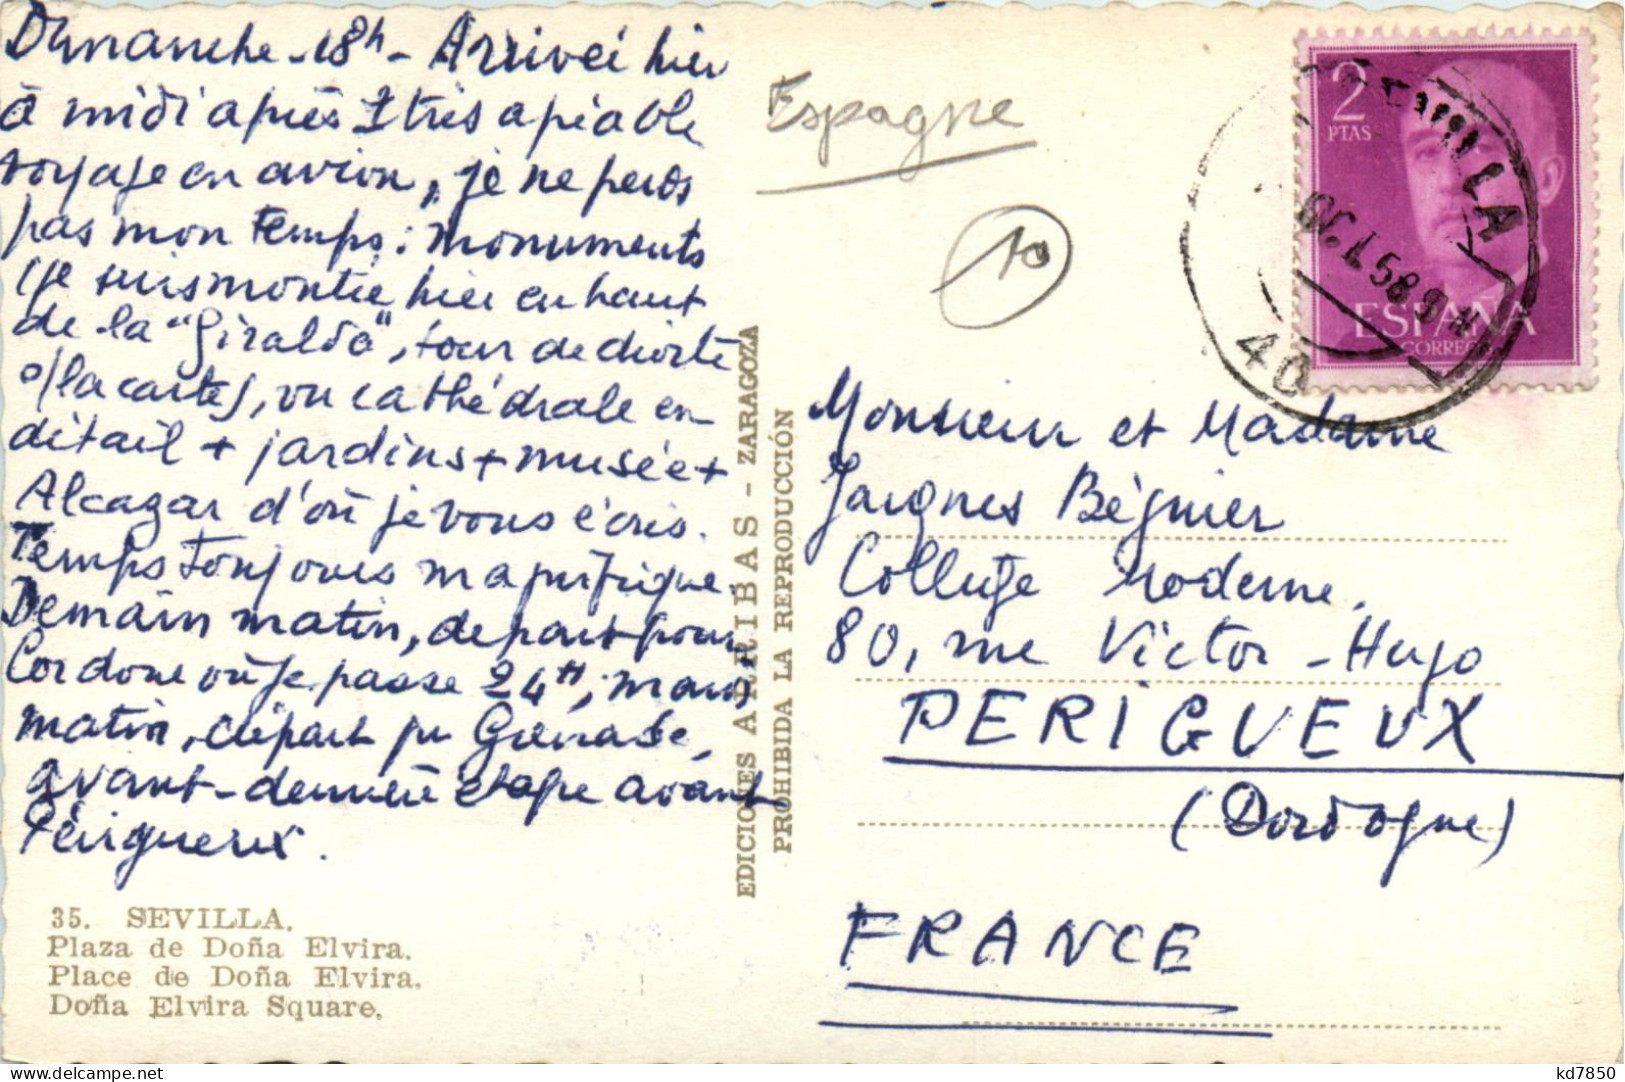 Dimanche - 18h - Arrivée hier
à midi après 1 très agréable
voyage en avion, je ne perds
pas mon temps : monuments
(je suis montée hier en haut
de la "Giralda", tour de droite
s/la carte), vu cathédrale en
détail + jardins + musée +
Alcazar d'où je vous écris.
Temps toujours magnifique.
Demain matin, départ pour
Cordoue où je passe 24H,
matin, départ pr Grenade,
avant-dernière étape avant
Périgueux.
35. SEVILLA.
Plaza de Doña Elvira.
Place de Doña Elvira.
Doña Elvira Square.
EDICIONES ARRIBAS - ZARAGOZA
PROHIBIDA LA REPRODUCCIÓN
Espagne
10
2
PTAS
ESPAÑA
CORREOS
40
Monsieur et Madame
Jacques Bégnier
Collège Moderne.
80, rue Victor-Hugo
PERIGUEUX
(Dordogne)
FRANCE
kd7850